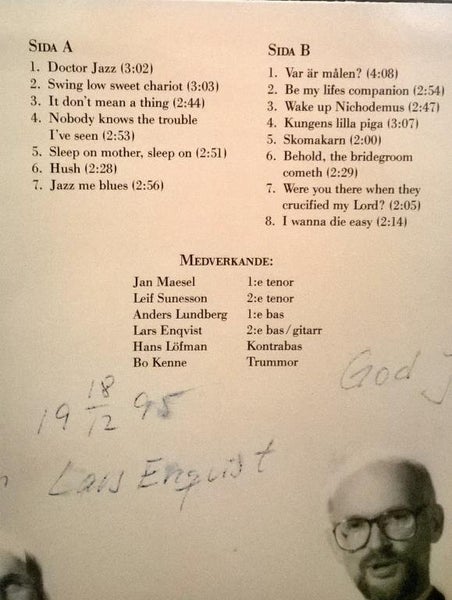 SIDA A
1. Doctor Jazz (3:02)
2. Swing low sweet chariot (3:03)
3. It don't mean a thing (2:44)
4. Nobody knows the trouble
I've seen (2:53)
5. Sleep on mother, sleep on (2:51)
6. Hush (2:28)
7. Jazz me blues (2:56)
SIDA B
1. Var är målen? (4:08)
2. Be my lifes companion (2:54)
3. Wake up Nichodemus (2:47)
4. Kungens lilla piga (3:07)
5. Skomakarn (2:00)
6. Behold, the bridegroom
cometh (2:29)
7. Were you there when they
crucified my Lord? (2:05)
8. I wanna die easy (2:14)
MEDVERKANDE:
Jan Maesel 1:e tenor
Leif Sunesson 2:e tenor
Anders Lundberg 1:e bas
Lars Enqvist 2:e bas/gitarr
Hans Löfman Kontrabas
Bo Kenne Trummor
God J
19 18/12 95
Lars Enqvist